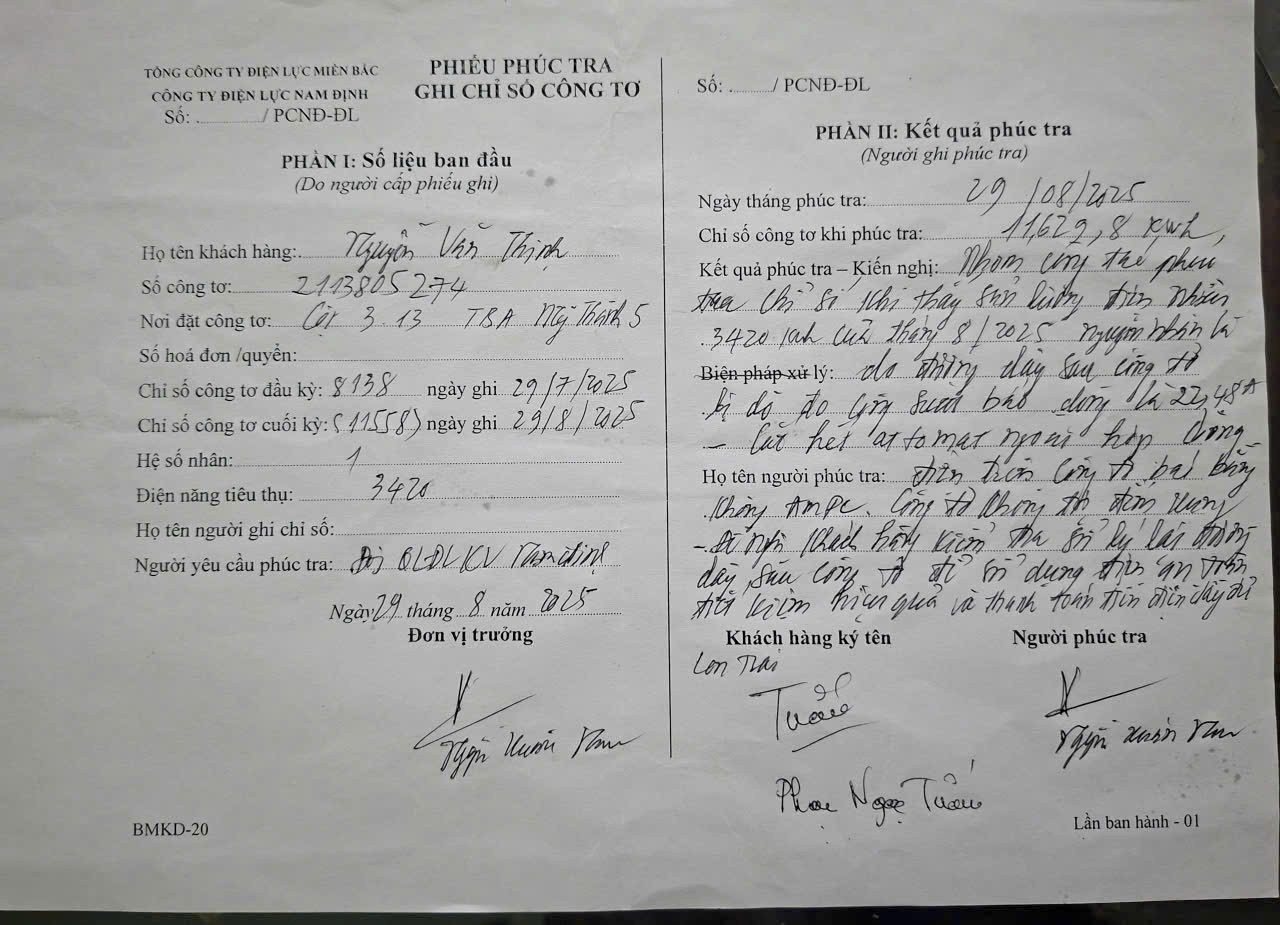 TỔNG CÔNG TY ĐIỆN LỰC MIỀN BẮC
CÔNG TY ĐIỆN LỰC NAM ĐỊNH
Số: ............/ PCNĐ-ĐL
PHIẾU PHÚC TRA
GHI CHỈ SỐ CÔNG TƠ
PHẦN I: Số liệu ban đầu
(Do người cấp phiếu ghi)
Họ tên khách hàng: Nguyễn Văn Thịnh
Số công tơ: 2113805274
Nơi đặt công tơ: Cột 3.13 TBA Mỹ Thành 5
Số hoá đơn /quyển:
Chỉ số công tơ đầu kỳ: 8138 ngày ghi 29/7/2025
Chỉ số công tơ cuối kỳ: (11558) ngày ghi 29/8/2025
Hệ số nhân: 1
Điện năng tiêu thụ: 3420
Họ tên người ghi chỉ số:
Người yêu cầu phúc tra: Đội QLĐLKV Nam định
Ngày 29 tháng 8 năm 2025
Đơn vị trưởng
Nguyễn Xuân Nam
BMKD-20
Số: ........../ PCNĐ-ĐL
PHẦN II: Kết quả phúc tra
(Người ghi phúc tra)
Ngày tháng phúc tra: 29/08/2025
Chỉ số công tơ khi phúc tra: 11,629,8 kwh,
Kết quả phúc tra – Kiến nghị: Nhóm công tác phúc
tra chỉ số khi thấy sản lượng điện nhiều
3420 kwh của tháng 8/2025 nguyên nhân là
Biện pháp xử lý: do đường dây sau công tơ
bị dò đo công suất báo dòng là 22,48A
- Cắt hết attomat ngoài hộp dòng
Họ tên người phúc tra: điện trên công tơ báo bằng
không AmPe. Công tơ không đếm xung
- Đề nghị khách hàng kiểm tra sử lý lại đường
dây sau công tơ để sử dụng điện an toàn
tiết kiệm hiệu quả và thanh toán tiền điện đầy đủ
Khách hàng ký tên
Người phúc tra
Con Trai
Tuấn
Nguyễn Xuân Nam
Phạm Ngọc Tuấn
Lần ban hành - 01